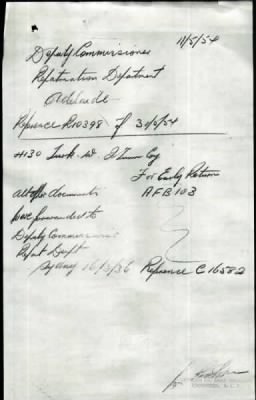 11/5/54
Deputy Commissioner
Repatriation Department
Adelaide
Reference R10398 of 30/4/54
4130 Turk. W. 2 Tunn Coy
For Early Return
AFB 103
all other documents
were forwarded to
Deputy Commissioner
Repat Dept
Sydney 16/3/36 Reference C16582